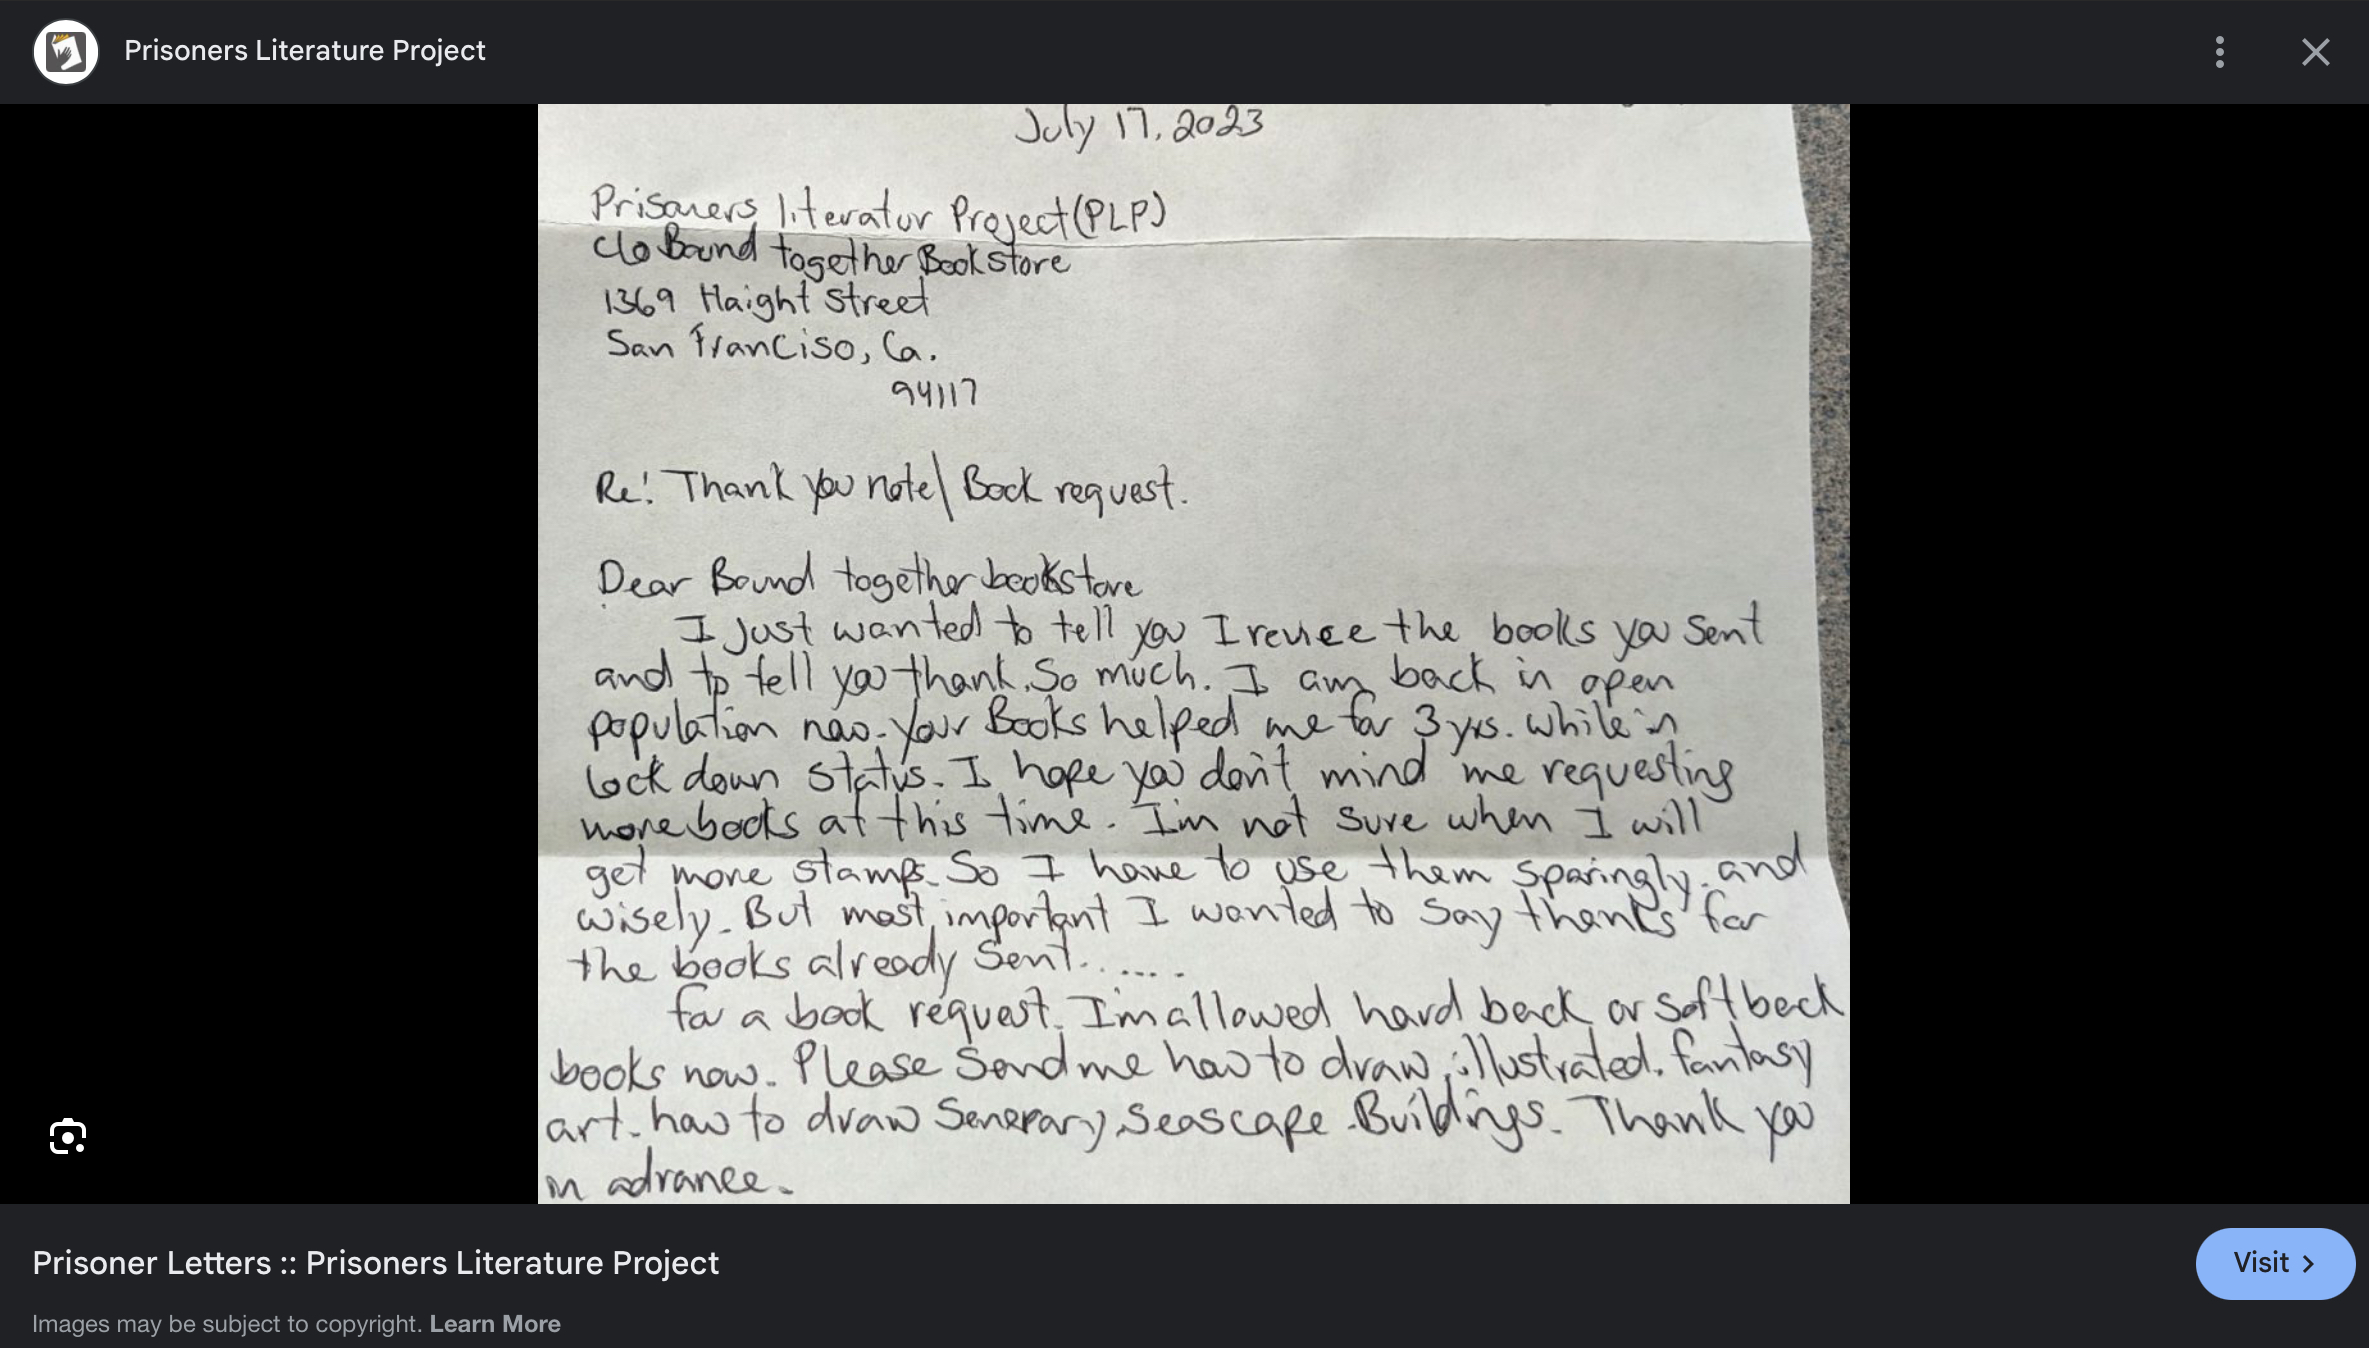 Prisoners Literature Project
July 17, 2023
Prisoners literatur Project (PLP)
c/o Bound together Bookstore
1369 Haight Street
San Franciso, Ca.
94117
Re: Thank you note\ Book request.
Dear Bound together bookstore
I Just wanted to tell you I reviee the books you sent
and to tell you thank. So much. I am back in open
population now. Your Books helped me for 3 yrs. while in
lock down status. I hope you don't mind me requesting
more books at this time. I'm not sure when I will
get more stamps. So I have to use them sparingly. and
wisely. But most important I wanted to say thanks for
the books already sent......
for a book request. I'm allowed hard back or soft back
books now. Please Send me how to draw, illustrated. fantasy
art. how to draw Senerary, Seascape. Buildings. Thank you
in advance.
Prisoner Letters :: Prisoners Literature Project
Visit >
Images may be subject to copyright. Learn More